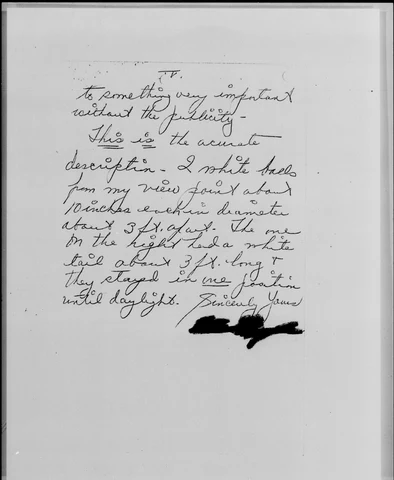 IV.
to something very important
without the publicity -
This is the acurate
description - 2 white balls
from my view point about
10 inches each in diameter
about 3 ft. apart. The one
on the right had a white
tail about 3 ft. long &
they stayed in one position
until daylight. Sincerely Yours